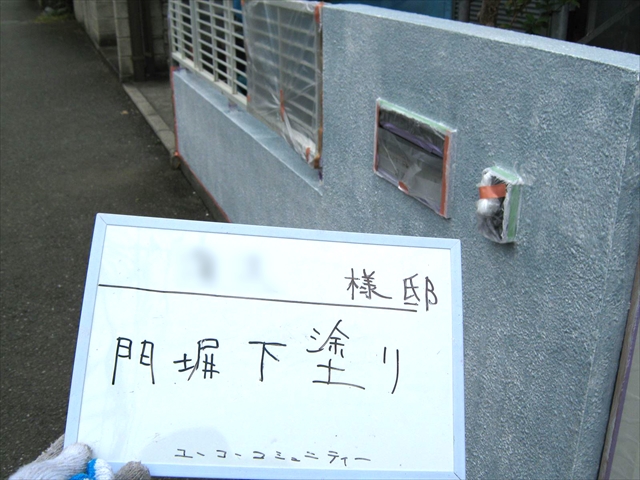 様邸
門塀下塗り
ユーコーコミュニティー